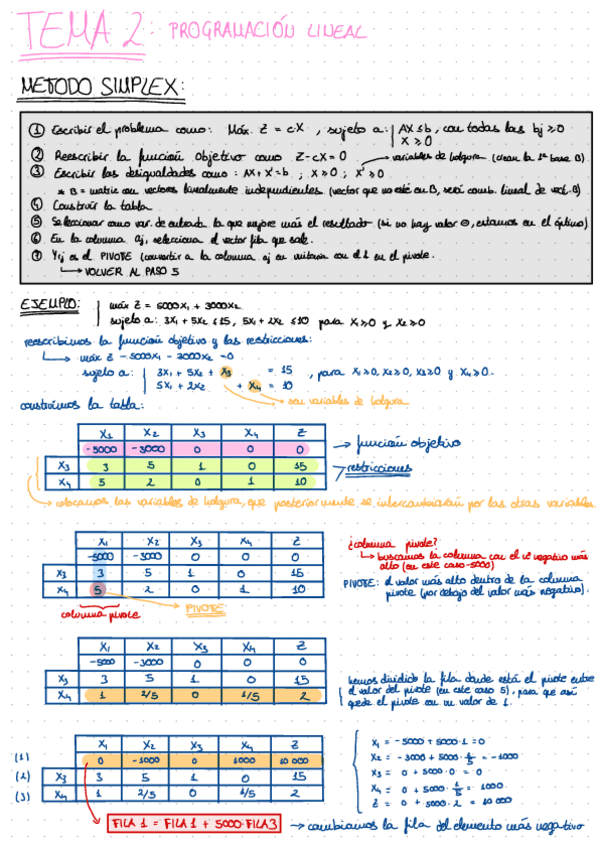 TEMA 2: PROGRAMACIÓN LINEAL
METODO SIMPLEX:
① Escribir el problema como: Máx. Z = c·X , sujeto a: AX ≤ b, con todas las bj ≥ 0
X ≥ 0
② Reescribir la función objetivo como Z-cX = 0
variables de holgura (crean la 1ª base B)
③ Escribir las desigualdades como: AX + X' = b ; X ≥ 0 ; X' ≥ 0
* B = matriz con vectores linealmente independientes (vector que no esté en B, será comb. lineal de vect. B)
④ Construir la tabla
⑤ Seleccionar como var. de entrada la que mejore más el resultado (si no hay valor ⊖, estamos en el óptimo)
⑥ En la columna aj, selecciona el vector fila que sale.
⑦ Yij es el PIVOTE (convertir a la columna aj en unitaria con el 1 en el pivote.
↳ VOLVER AL PASO 5
EJEMPLO: máx Z = 5000X1 + 3000X2
sujeto a: 3X1 + 5X2 ≤ 15, 5X1 + 2X2 ≤ 10 para X1 ≥ 0 y X2 ≥ 0
reescribimos la función objetivo y las restricciones:
↳ máx Z - 5000X1 - 3000X2 = 0
sujeto a: 3X1 + 5X2 + X3 = 15 , para X1 ≥ 0, X2 ≥ 0, X3 ≥ 0 y X4 ≥ 0.
5X1 + 2X2 + X4 = 10
son variables de holgura
construimos la tabla:
X1 X2 X3 X4 Z
-5000 -3000 0 0 0 → función objetivo
X3 3 5 1 0 15 restricciones
X4 5 2 0 1 10
colocamos las variables de holgura, que posteriormente se intercambiarán por las otras variables
X1 X2 X3 X4 Z
-5000 -3000 0 0 0
X3 3 5 1 0 15
X4 5 2 0 1 10
columna pivote
PIVOTE
¿columna pivote?
↳ buscamos la columna con el nº negativo más
alto (en este caso -5000)
PIVOTE: el valor más alto dentro de la columna
pivote (por debajo del valor más negativo).
X1 X2 X3 X4 Z
-5000 -3000 0 0 0
X3 3 5 1 0 15
X4 1 2/5 0 1/5 2
hemos dividido la fila donde está el pivote entre
el valor del pivote (en este caso 5), para que así
quede el pivote con un valor de 1.
X1 X2 X3 X4 Z
(1) 0 -1000 0 1000 10 000
(2) X3 3 5 1 0 15
(3) X4 1 2/5 0 1/5 2
X1 = -5000 + 5000·1 = 0
X2 = -3000 + 5000· = -1000
X3 = 0 + 5000·0 = 0
X4 = 0 + 5000·1/5 = 1000
Z = 0 + 5000·2 = 10 000
FILA 1 = FILA 1 + 5000·FILA 3 → cambiamos la fila del elemento más negativo